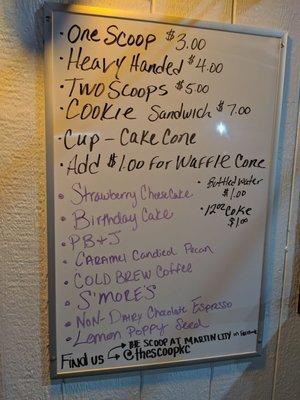 · One Scoop $3.00
· Heavy Handed $4.00
· Two Scoops $5.00
· Cookie Sandwich $7.00
· Cup - Cake Cone
· Add $1.00 for Waffle Cone
· Bottled Water
$1.00
· 12oz Coke
$1.00
· Strawberry Cheesecake
· Birthday Cake
· PB & J
· Caramel Candied Pecan
· Cold Brew Coffee
· S'mores
· Non-Dairy Chocolate Espresso
· Lemon Poppy Seed
Find us → BE SCOOP AT MARTIN CITY on
→ @thescoopkc